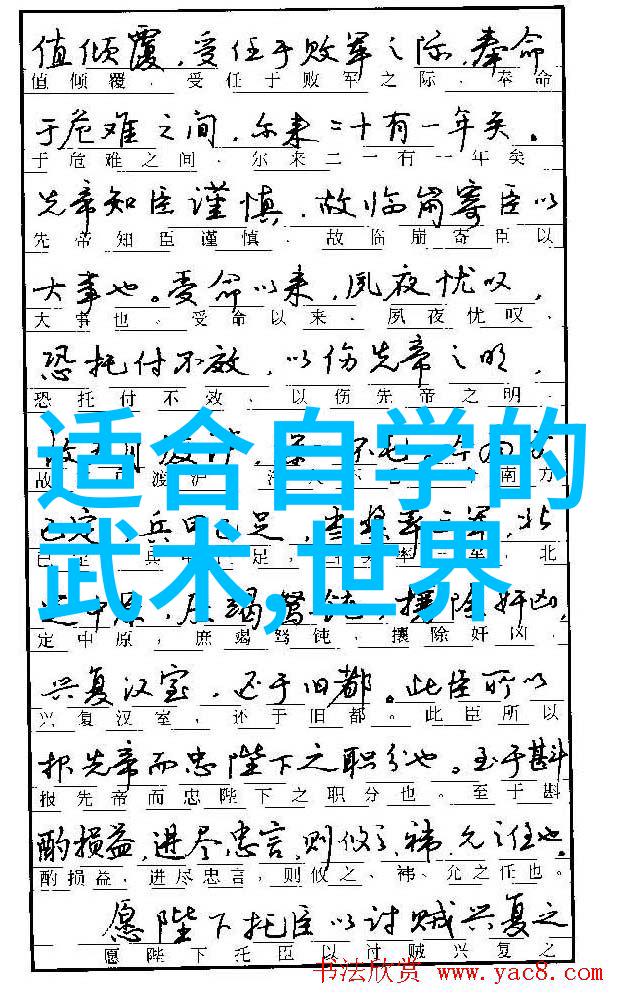 值倾覆,受任于败军之际,奉命
值倾覆,受任于败军之际,奉命
于危难之间,尔来二十有一年矣。
于危难之间,尔来二一有一年矣
先帝知臣谨慎,故临崩寄臣以
先帝知臣谨慎,故临崩寄臣以
大事也。受命以来,夙夜忧叹,
大事也。受命以来,夙夜忧叹,
恐托付不效,以伤先帝之明,
恐托付不效,以伤先帝之明,
适合自学的
故 渡 不 南方
已定,兵 足, 三军,北
武术,世界
足, 北
定中原,庶竭驽钝,攘除奸凶,
定中原,庶竭驽钝,攘除奸凶,
兴复汉室,还于旧都。此臣所以
兴复汉室,还于旧都。此臣所以
报先帝而忠陛下之职分也。至于斟
报先帝而忠陛下之职分也。至于斟
酌损益,进尽忠言,则攸之、祎、允之任也。
酌损益,进尽忠言,则攸之、祎、允之任也。
愿陛下托臣以讨贼兴复之
愿陛下托臣以讨贼兴复之
书法欣赏 www.yac8.com